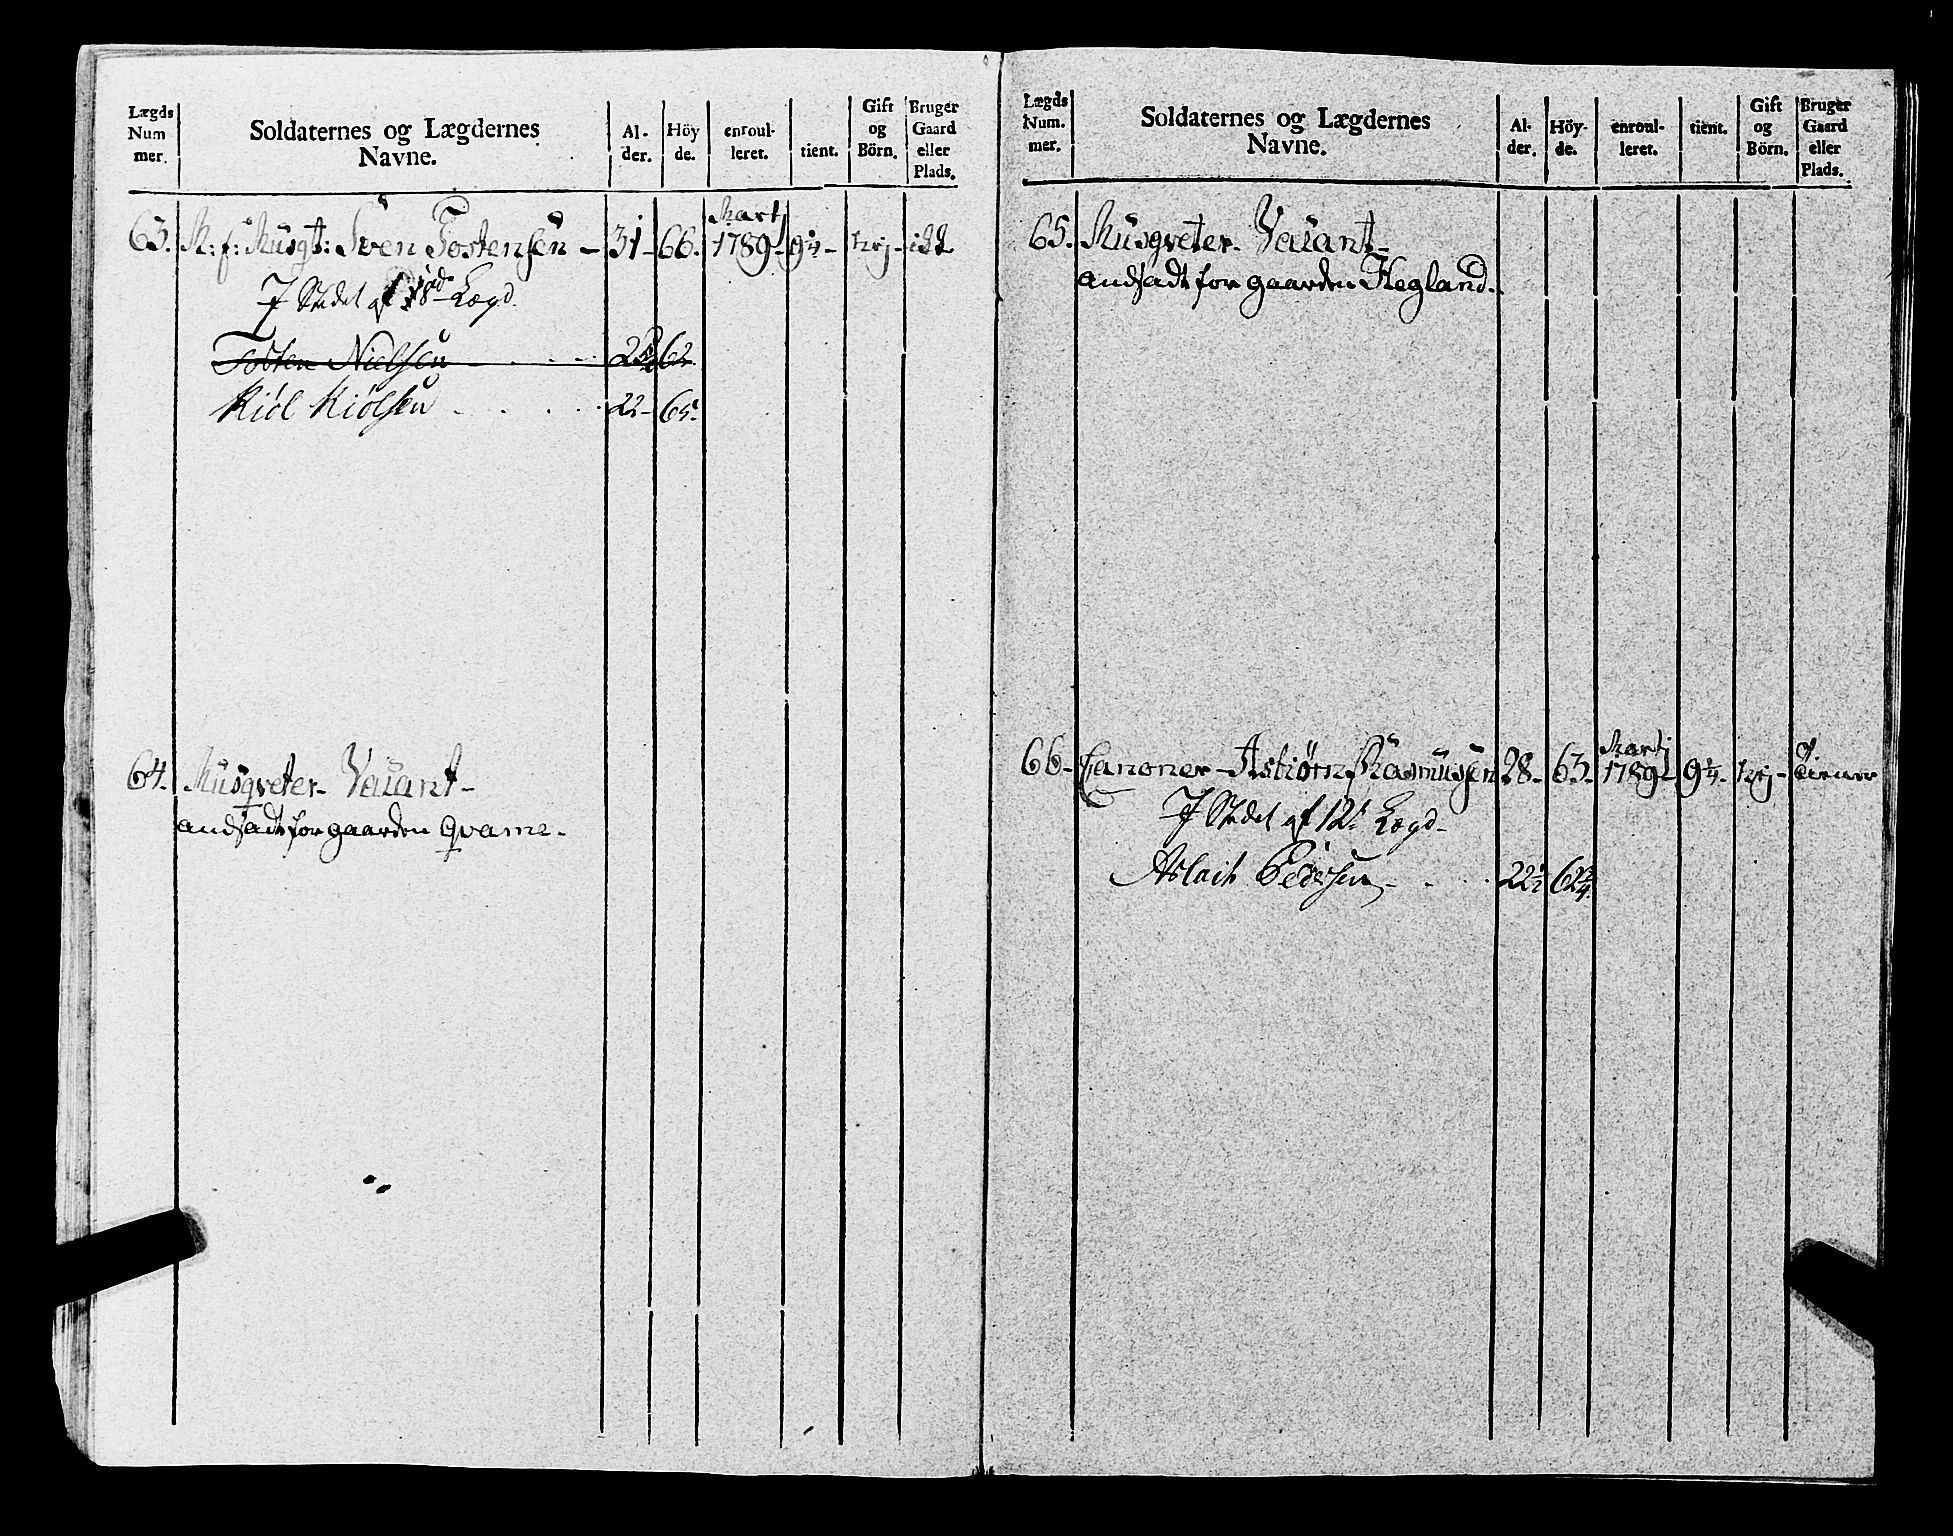 Lægds
Num
mer.
Soldaternes og Lægdernes
Navne.
Al-
der.
Höy
de.
enroul-
leret.
tient.
Gift
og
Börn.
Bruger
Gaard
eller
Plads.
63. M: f: Musqt: Sven Tostensen - 31 - 66. Martj 1789 - 9¼ - Nej -
I Stedet af Lægd
Tosten Nielsen 62
Kiøl Kiølsen 22 - 65
64. Musqveter - Vacant -
andsadt for gaarden Qvame -
Lægds
Num.
mer.
Soldaternes og Lægdernes
Navne.
Al-
der.
Höy-
de.
enroul-
leret.
tient.
Gift
og
Börn.
Bruger
Gaard
eller
Plads.
65. Musqveter - Vacant -
andsadt for gaarden Hegland.
66 - Canoner - Astiørn Rasmusen 28 - 63 - Martj 1789 - 9¼ - Nej - Tiener
I Stedet af 12t Lægd -
Aslach Pedersen 22½ 62¾